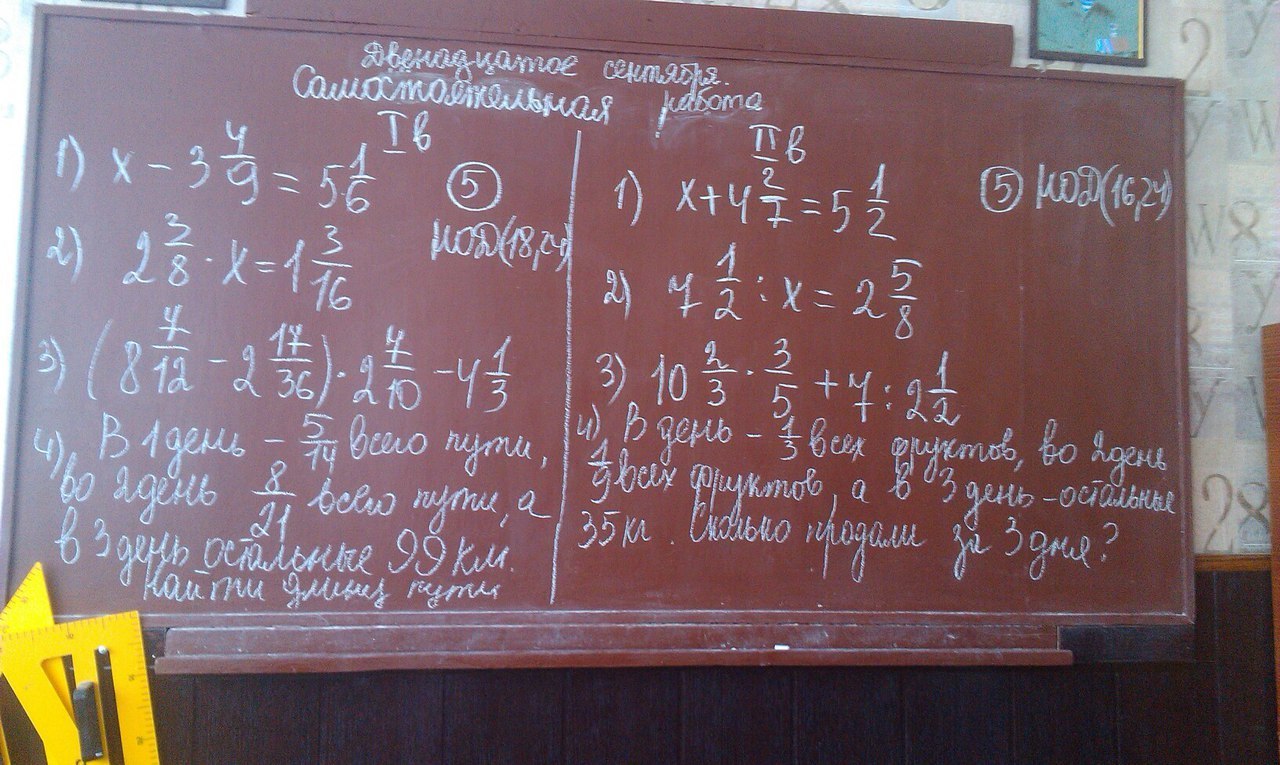 Двенадцатое сентября.
Самостоятельная работа
I в
1) x - 3 4/9 = 5 1/6
2) 2 3/8 · x = 1 3/16
3) (8 7/12 - 2 17/36) · 2 7/10 - 4 1/3
4) В 1 день - 5/14 всего пути,
во 2 день 8/21 всего пути, а
в 3 день остальные 99 км.
Найти длину пути
5
НОД(18,24)
II в
1) x + 4 2/7 = 5 1/2
2) 7 1/2 : x = 2 5/8
3) 10 2/3 · 3/5 + 7 : 2 1/2
4) В день - 1/3 всех фруктов, во 2 день
1/9 всех фруктов, а в 3 день - остальные
35 кг. Сколько продали за 3 дня?
5 НОД(16,24)